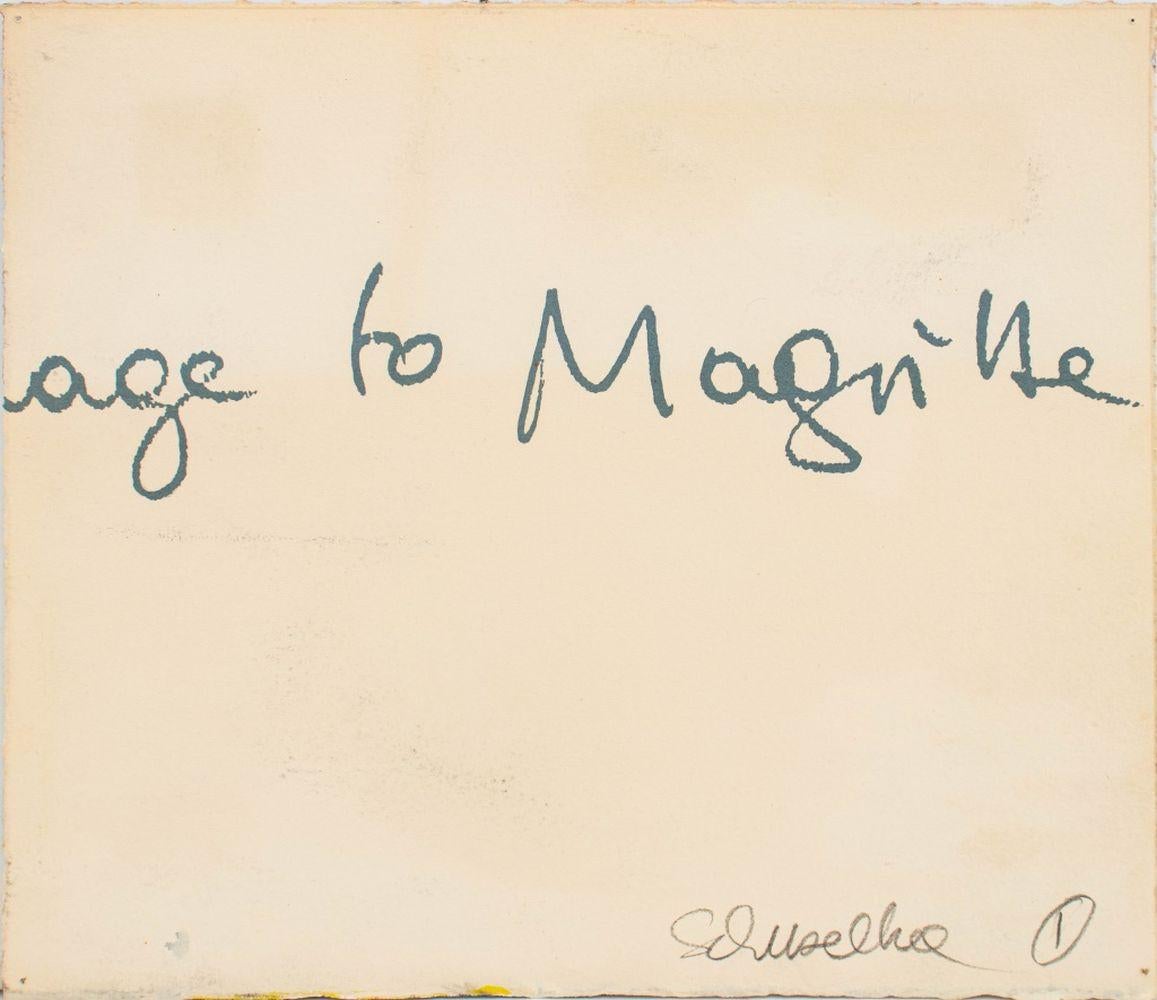 age to Magritte
Schuselka 1